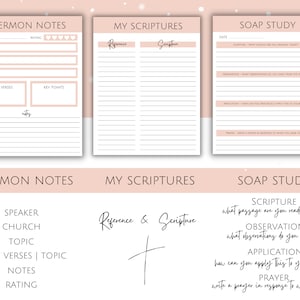 ERMON NOTES
RATING
VERSES
KEY POINTS
notes
MY SCRIPTURES
Reference
Scripture
SOAP STUDY
DATE
MON NOTES
SPEAKER
CHURCH
TOPIC
VERSES | TOPIC
NOTES
RATING
MY SCRIPTURES
Reference & Scripture
SOAP STUD
SCRIPTURE
what passage are you read
OBSERVATION
what observations do you
APPLICATION
how can you apply this to y
PRAYER
write a prayer in response to